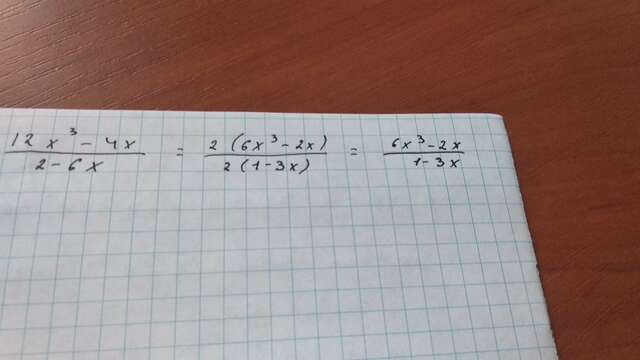 (12x³ - 4x)/(2 - 6x) = (2(6x³ - 2x))/(2(1 - 3x)) = (6x³ - 2x)/(1 - 3x)